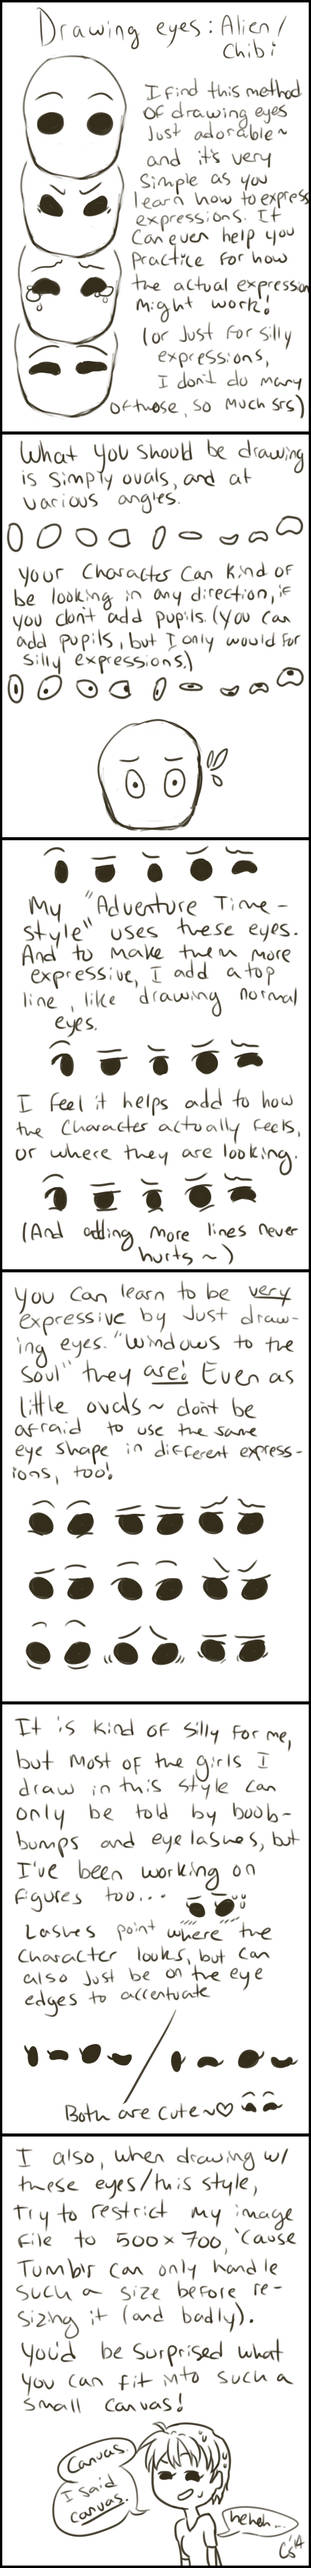 Drawing eyes: Alien/
Chibi
I find this method
of drawing eyes
just adorable~
and it's very
simple as you
learn how to express
expressions. It
can even help you
practice for how
the actual expression
might work!
(or just for silly
expressions,
I don't do many
of those, so much srs)
What you should be drawing
is simply ovals, and at
various angles.
Your character can kind of
be looking in any direction, if
you don't add pupils. (You can
add pupils, but I only would for
silly expressions.)
My "Adventure Time-
style" uses these eyes.
And to make them more
expressive, I add a top
line, like drawing normal
eyes.
I feel it helps add to how
the character actually feels,
or where they are looking.
(And adding more lines never
hurts~)
You can learn to be very
expressive by just draw-
ing eyes. "Windows to the
soul" they are! Even as
little ovals~ don't be
afraid to use the same
eye shape in different express-
ions, too!
It is kind of silly for me,
but most of the girls I
draw in this style can
only be told by boob-
bumps and eyelashes, but
I've been working on
figures too...
Lashes point where the
character looks, but can
also just be on the eye
edges to accentuate
Both are cute~♡
I also, when drawing w/
these eyes/this style,
try to restrict my image
file to 500x700, 'cause
Tumblr can only handle
such a size before re-
sizing it (and badly).
You'd be surprised what
you can fit into such a
small canvas!
Canvas.
I said
canvas.
heheh...